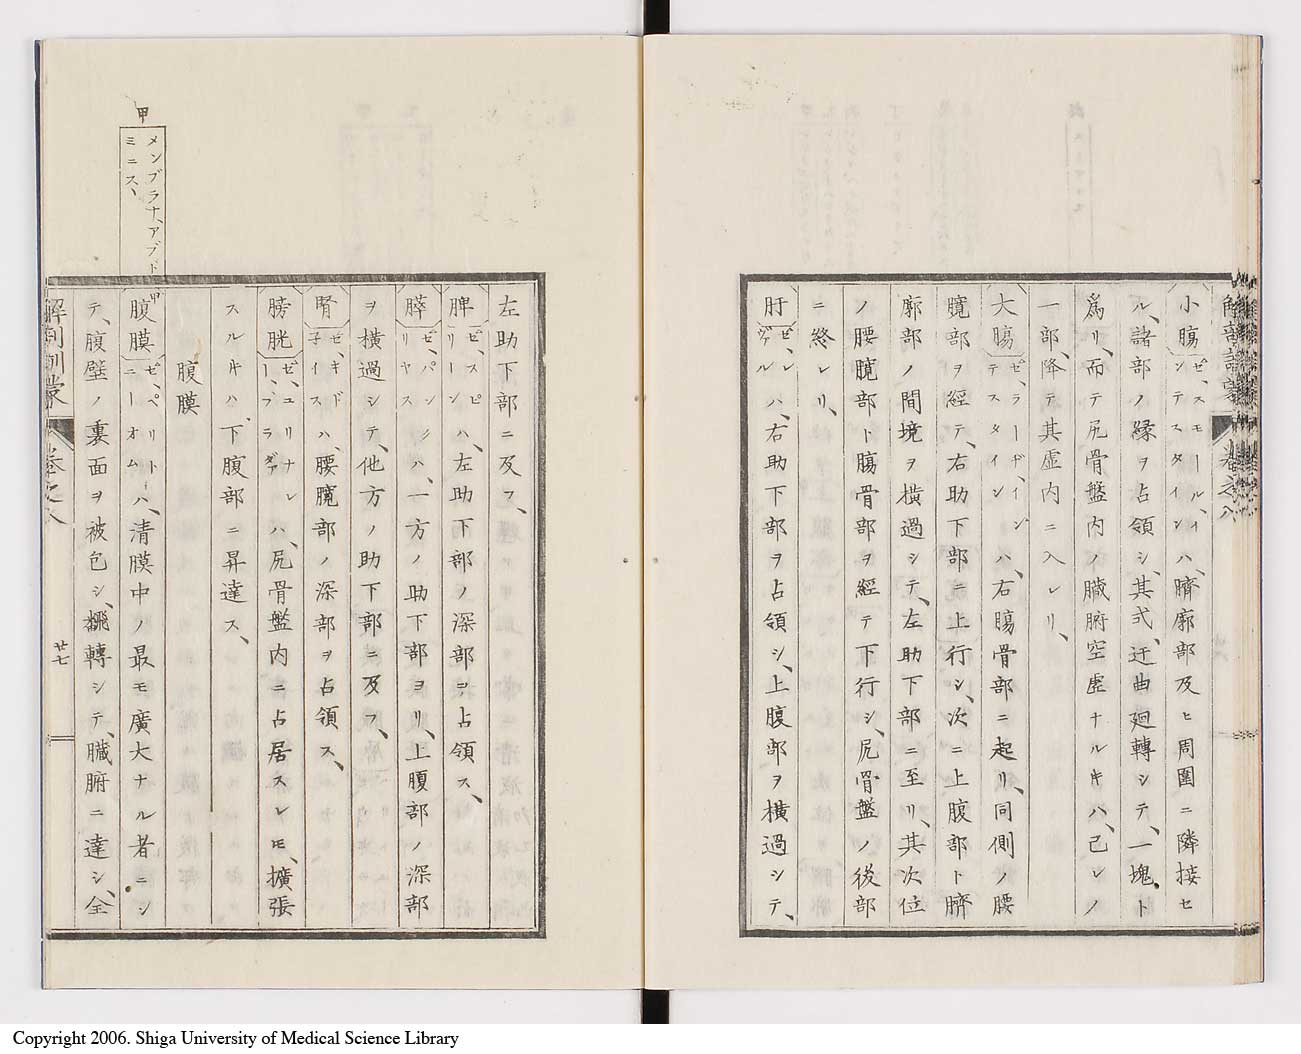 小膓ゼ、スモール、インテスタインハ、臍廓部及ヒ周圍ニ隣接セ
ル、諸部ノ縁ヲ占領シ、其式、迂曲廻轉シテ、一塊ト
爲リ、而テ尻骨盤内ノ臓腑空虚ナルキハ、己レノ
一部、降テ其虚内ニ入レリ、
大膓ゼ、ラーヂ、インテスタインハ、右膓骨部ニ起リ、同側ノ腰
髖部ヲ經テ、右助下部ニ上行シ、次ニ上腹部ト臍
廓部ノ間境ヲ橫過シテ、左助下部ニ至リ、其次位
ノ腰髖部ト膓骨部ヲ經テ下行シ、尻骨盤ノ後部
ニ終レリ、
肝ゼ、レヴァルハ、右助下部ヲ占領シ、上腹部ヲ橫過シテ、
左助下部ニ及フ、
脾ゼ、スピリーンハ、左助下部ノ深部ヲ占領ス、
膵ゼ、パンクリヤスハ、一方ノ助下部ヨリ、上腹部ノ深部
ヲ橫過シテ、他方ノ助下部ニ及フ、
腎ゼ、キドネイスハ、腰髖部ノ深部ヲ占領ス、
膀胱ゼ、ユリナレー、ブラダァハ、尻骨盤内ニ占居スレ𪜈、擴張
スルキハ、下腹部ニ昇達ス、
腹膜
甲
メンブラナ、アブド
ミニス、
甲
腹膜ゼ、ペリトニーオムハ、清膜中ノ最モ廣大ナル者ニシ
テ、腹壁ノ裏面ヲ被包シ、飜轉シテ、臓腑ニ達シ、全
解剖訓蒙
卷之八
廿七
Copyright 2006. Shiga University of Medical Science Library